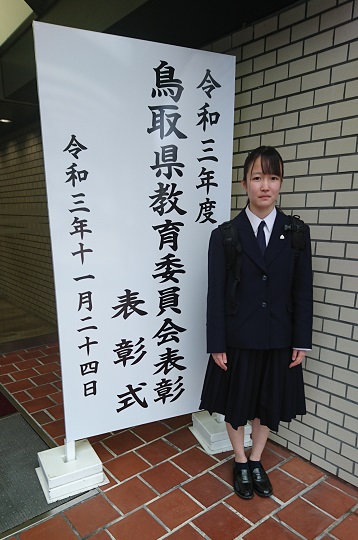 令和三年度
鳥取県教育委員会表彰
表彰式
令和三年十一月二十四日